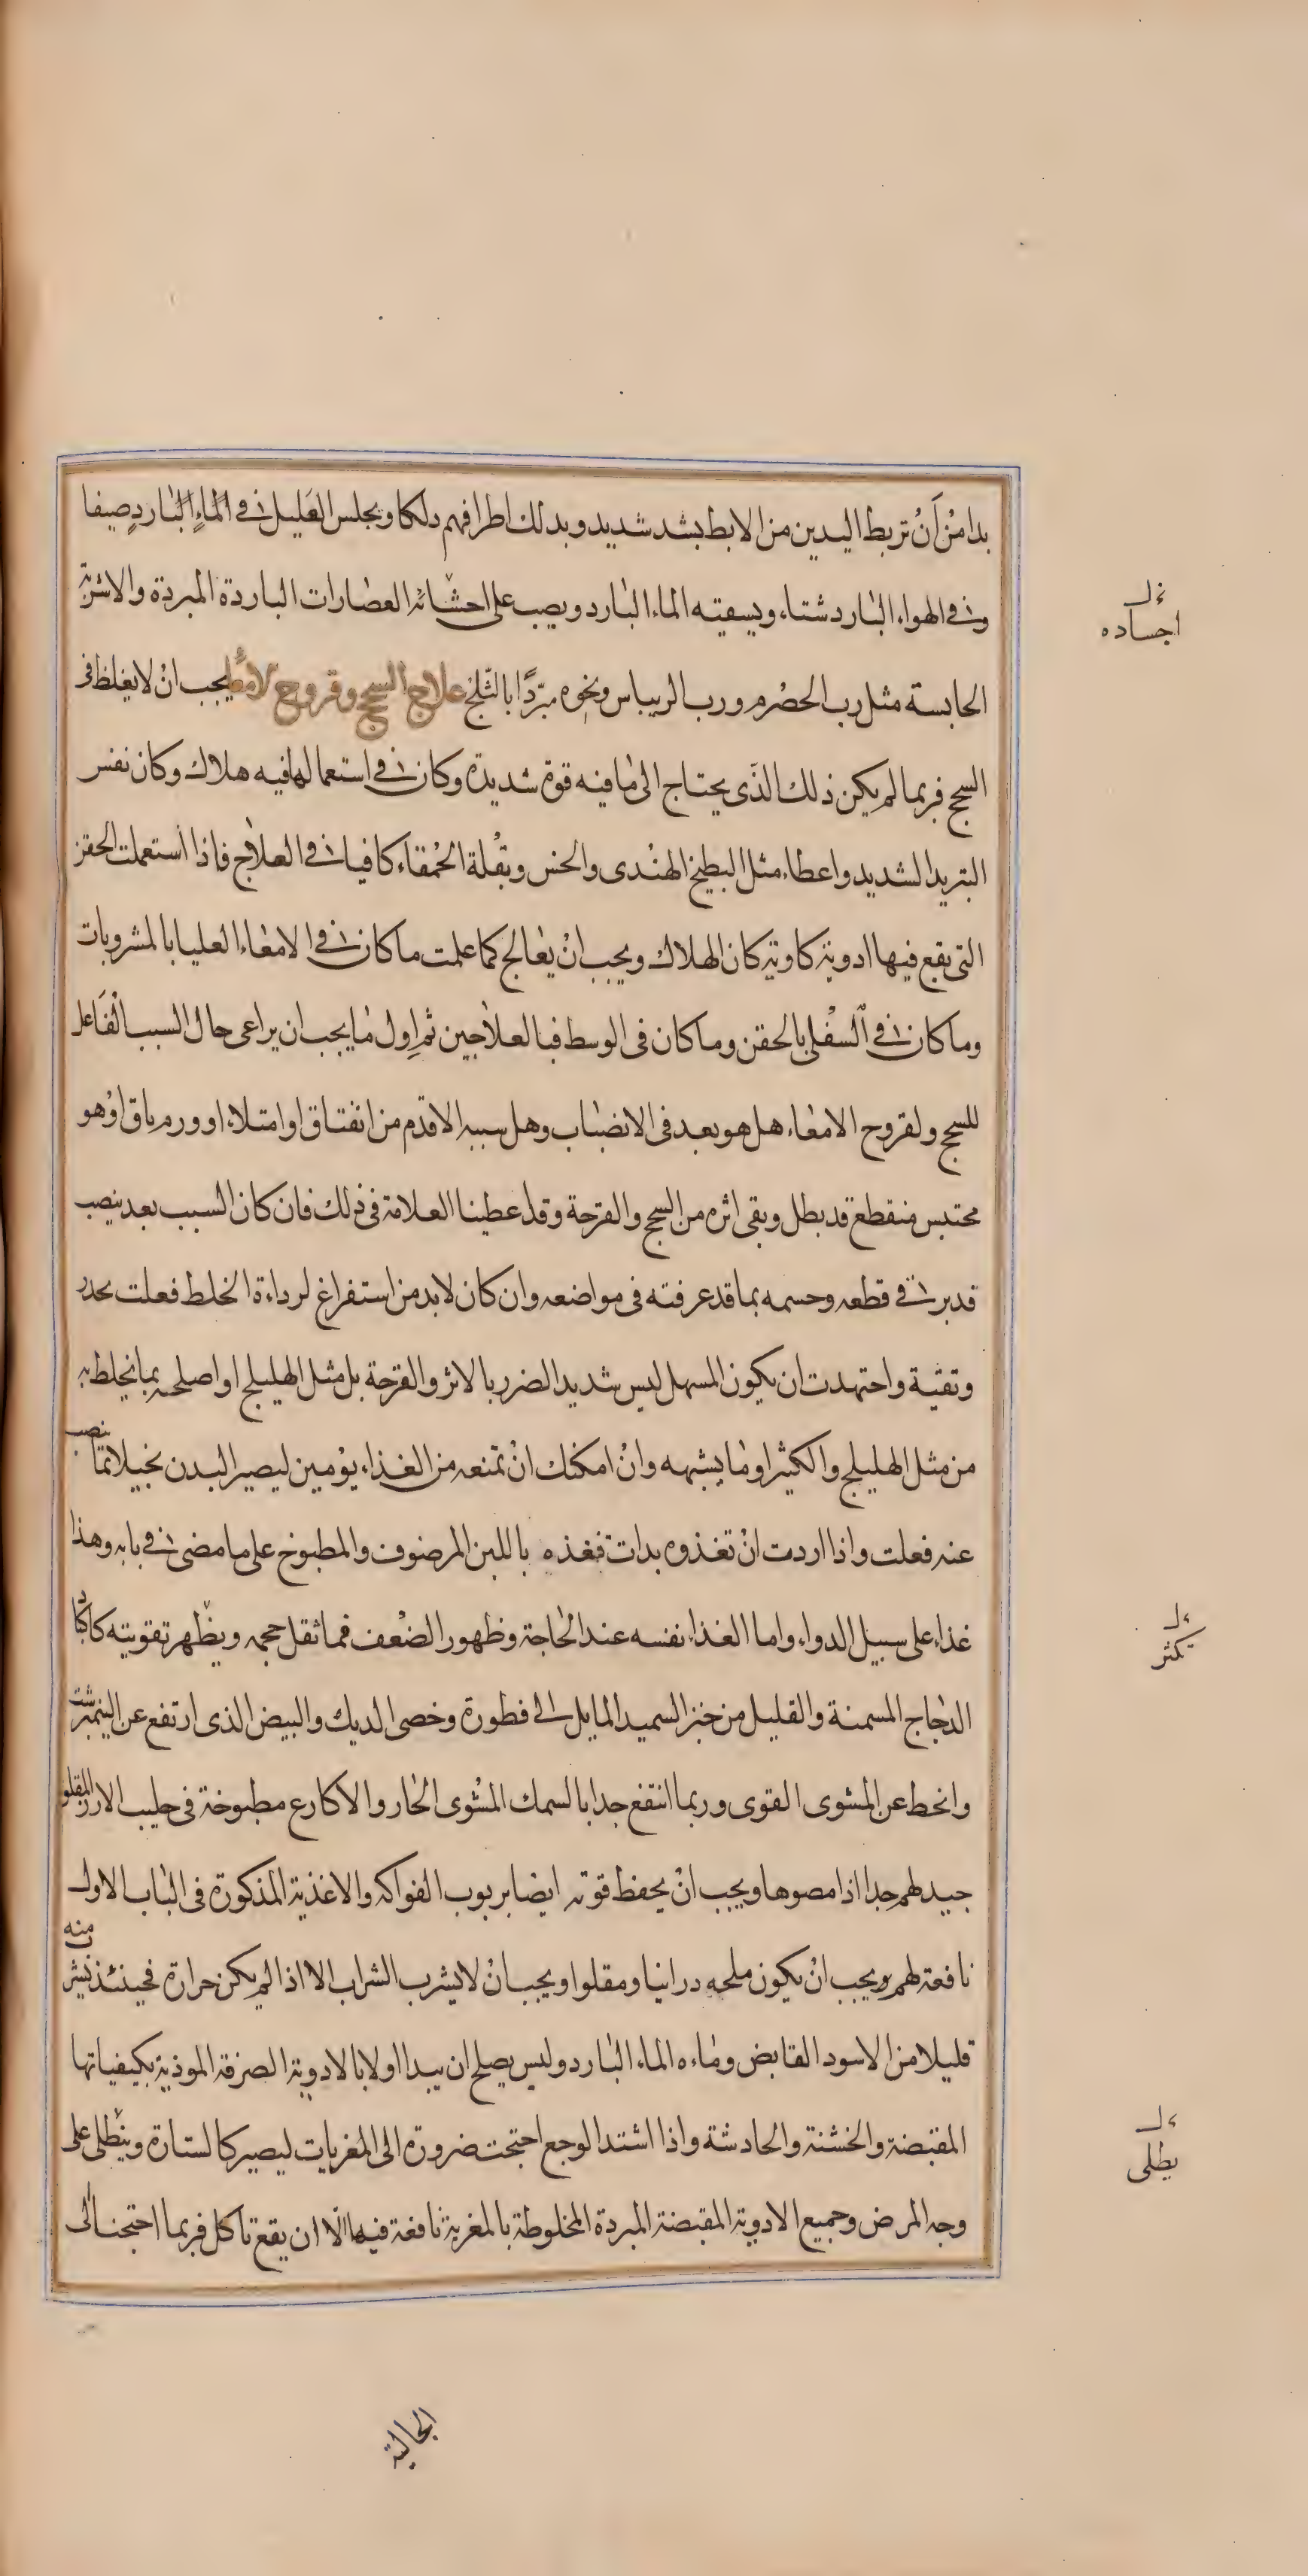 بدا من أن تربط اليدين من الابط بشد شديد وبدلك اطرافهم دلكا ويجلس العليل فى الماء البارد صيفا
وفى الهواء البارد شتاء ويسقيه الماء البارد ويصب على احشائه العصارات الباردة المبردة والاشربة
الحابسة مثل رب الحصرم ورب الريباس ونحوه مبردًا بالثلج علاج السحج وقروح الامعا يجب انْ لا يغلظ فى
السحج فربما لم يكن ذلك الذى يحتاج الى ما فيه قوة شديدة وكان فى استعمالها فيه هلاك وكان نفس
التبريد الشديد واعطاء مثل البطيخ الهندى والخس وبقلة الحمقاء كافيا فى العلاج فاذا استعملت الحقن
التى يقع فيها ادوية كاوية كان الهلاك ويجب انْ يعالج كما علمت ما كان فى الامعاء العليا بالمشروبات
وما كان فى السفلى بالحقن وما كان فى الوسط فبالعلاجين ثم اول ما يجب ان يراعى حال السبب الفاعل
للسحج ولقروح الامعاء هل هو بعد فى الانصباب وهل سببه الاقدم من انفتاق او امتلاء او ورم باق اوْ هو
محتبس منقطع قد بطل وبقى اثره من السحج والقرحة وقد اعطينا العلامة فى ذلك فان كان السبب بعد ينصب
قدبر فى قطعه وحسمه بما قد عرفته فى مواضعه وان كان لا بد من استفراغ لرداءة الخلط فعلت بحذر
وتقية واجتهدت ان يكون المسهل ليس شديد الضرر بالاثر والقرحة بل مثل الهليلج او اصلحه بما يخلط به
من مثل الهليلج والكثيرا وما يشبهه وانْ امكنك انْ تمنعه من الغذاء يوْمين ليصير البدن بخيلا بما ينصب
عنه فعلت واذا اردت انْ تغذوه بدات فغذه باللبن المرضوف والمطبوخ على ما مضى فى بابه وهذا
غذاء على سبيل الدواء واما الغذاء نفسه عند الحاجة وظهور الضعف فما ثقل حجمه ويظهر تقويته كاكباد
الدجاج المسمنة والقليل من خبز السميد المايل الى فطورة وخصى الديك والبيض الذى ارتفع عن النيمبرشت
وانحط عن المشوى القوى وربما انتفع جدا بالسمك المشوى الحار والاكارع مطبوخة فى حليب الارز المقلو
جيد لهم جدا اذا مصوها ويجب انْ يحفظ قوته ايضا بربوب الفواكه والاغذية المذكورة فى الباب الاول
نافعة لهم ويجب انْ يكون ملحه درانيا ومقلوا ويجب انْ لا يشرب الشراب الا اذا لم يكن حرارة فحينئذ يشرب منه
قليلا من الاسود القابض وماءه الماء البارد وليس يصلح ان يبدا اولا بالادوية الصرفة الموذية بكيفياتها
المقبضة والخشنة والحادشة واذا اشتد الوجع احتجت ضرورة الى المغريات ليصير كالستارة وينطلى على
وجه المرض وجميع الادوية المقبضة المبردة المخلوطة بالمغرية نافعة فيها الا ان يقع تاكل فربما احتجنا الى
اجساده
تكثر
يطلى
الجالية